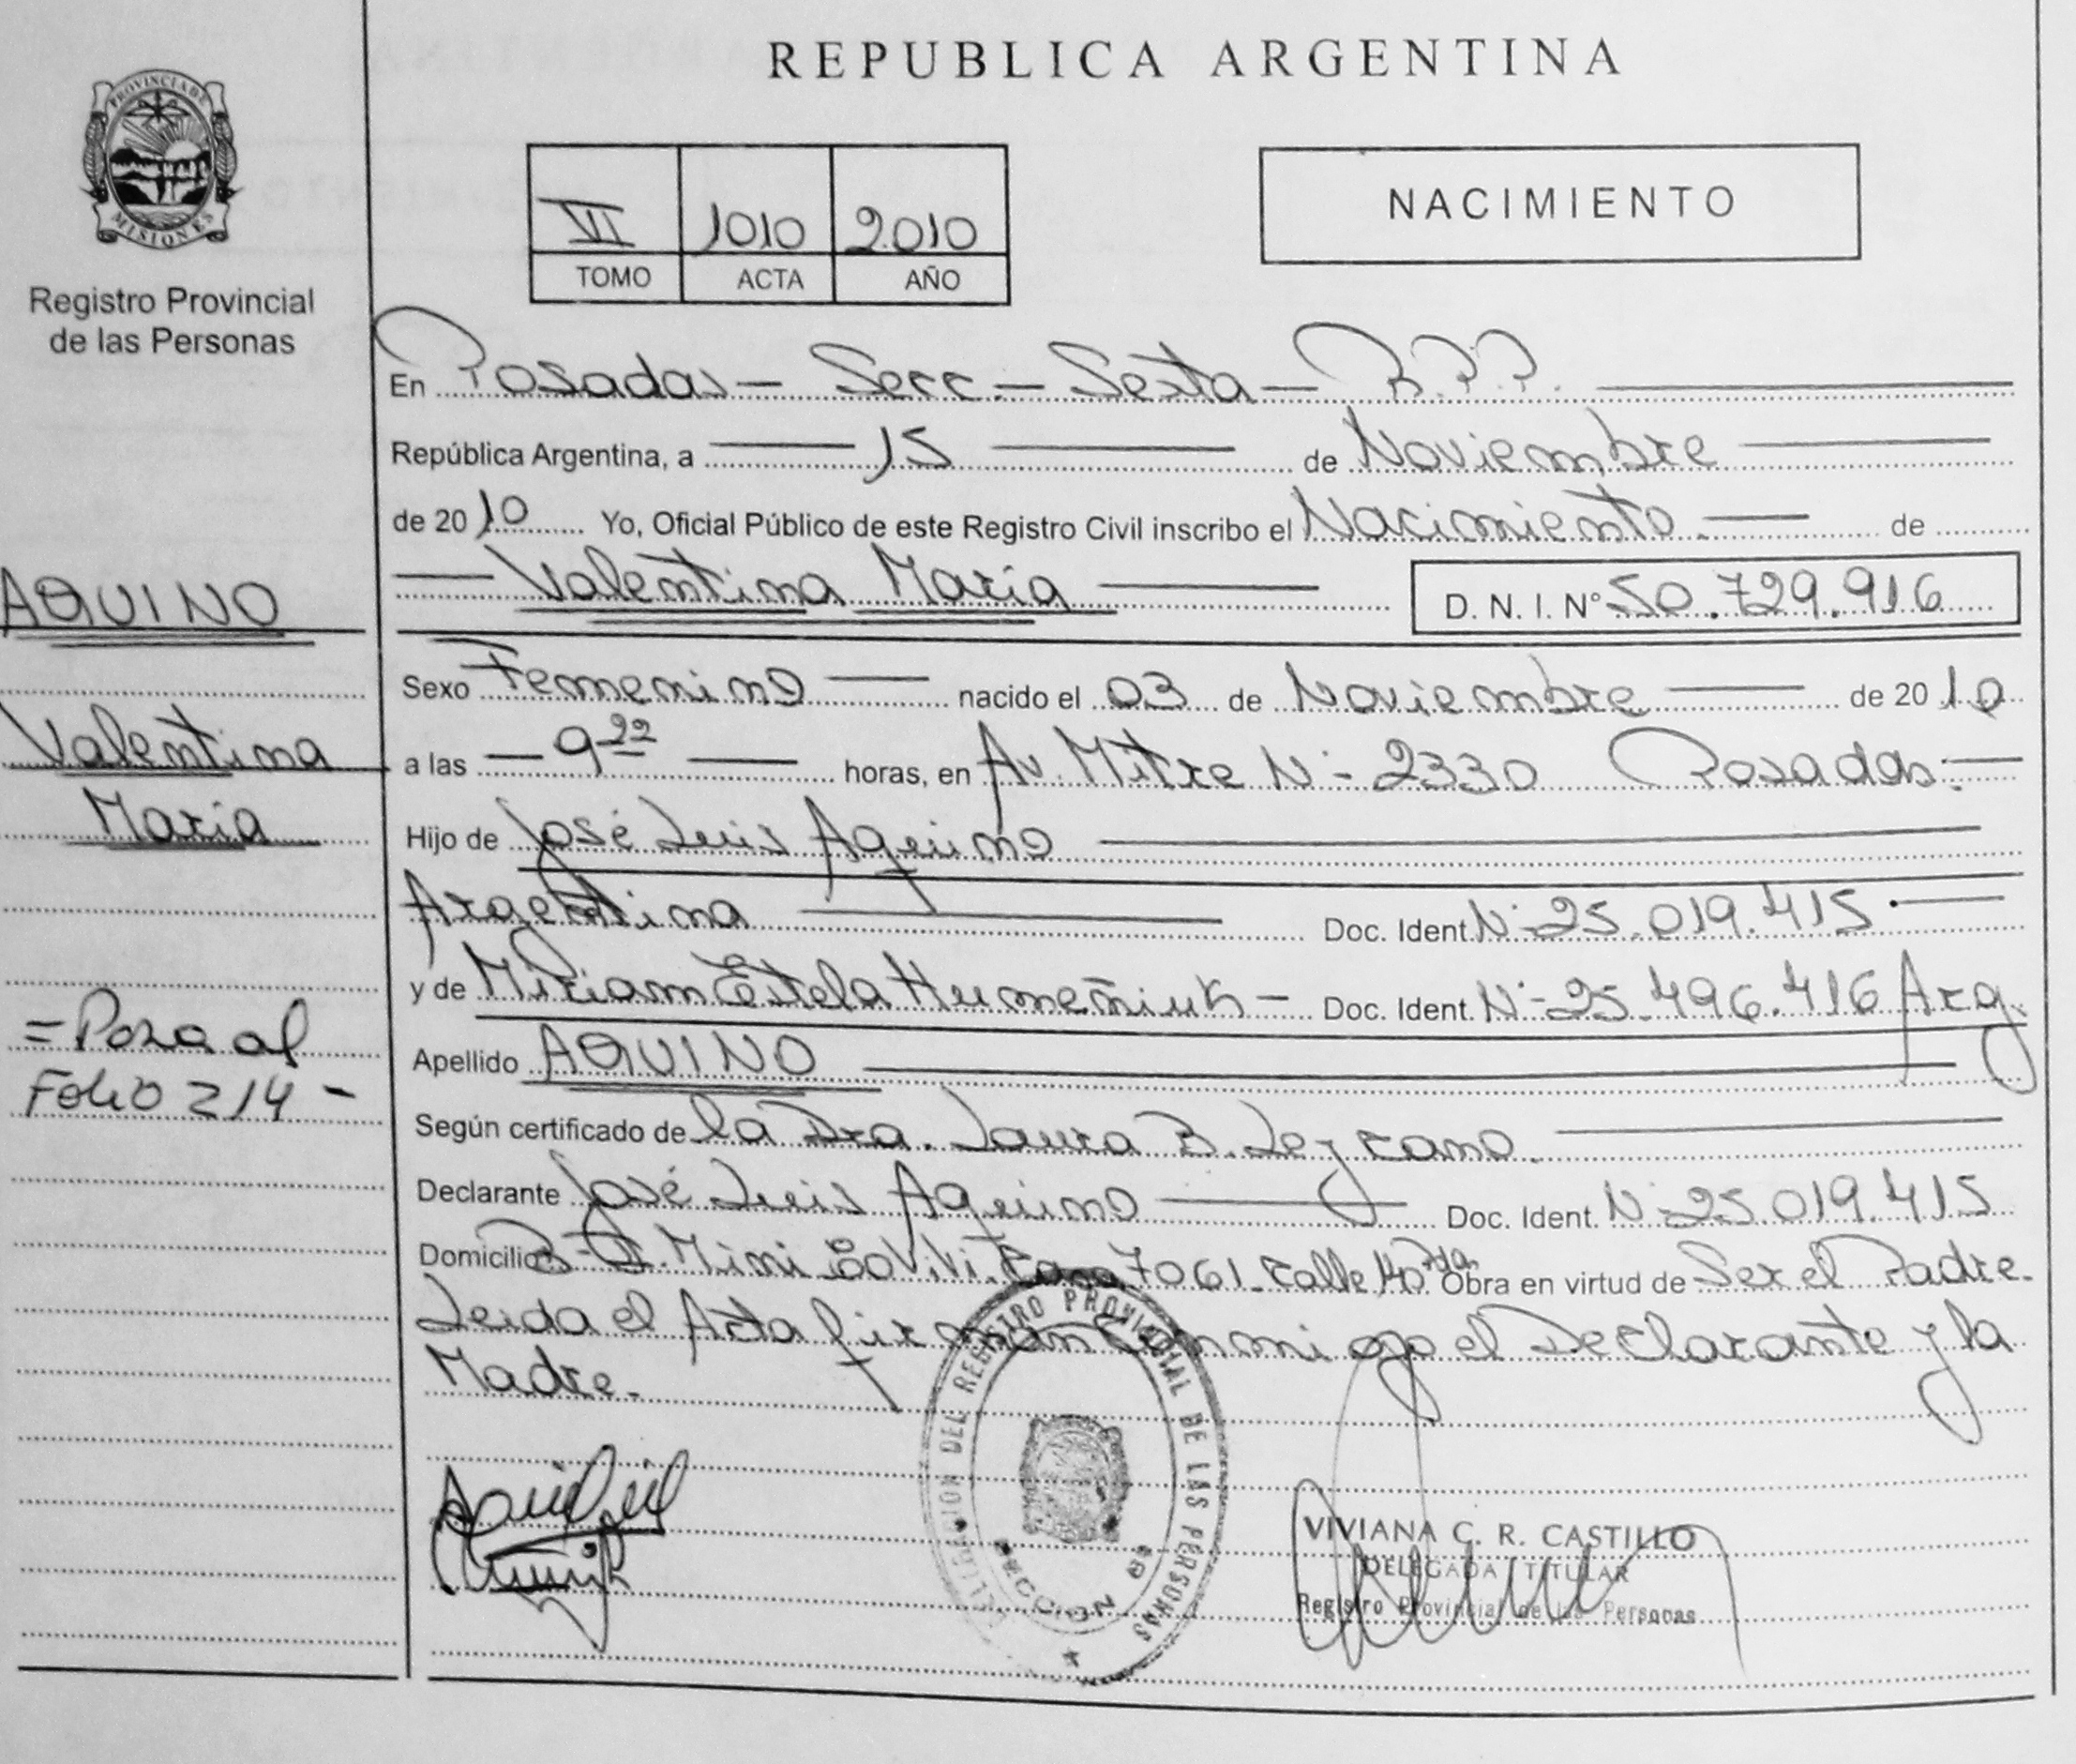 REPUBLICA ARGENTINA
PROVINCIA DE
MISIONES
Registro Provincial
de las Personas
VI 1010 2010
TOMO ACTA AÑO
NACIMIENTO
En Posadas - Secc. - Sexta - R.P.P.
República Argentina, a 15 de Noviembre
de 2010 Yo, Oficial Público de este Registro Civil inscribo el Nacimiento. de
Valentina María D. N. I. N° 50.729.916
AQUINO
Sexo Femenino nacido el 03 de Noviembre de 2010
Valentina
María
a las 9 22 horas, en Av. Mitre Nº 2330 Posadas.
Hijo de José Luis Aquino
Argentina Doc. Ident. Nº 25.019.415.
y de Miriam Estela Humeñiuk - Doc. Ident. Nº 25.496.416 Arg.
= Pasa al
Folio 214 -
Apellido AQUINO
Según certificado de la Dra. Laura B. Leyrano.
Declarante José Luis Aquino Doc. Ident. Nº 25 019.415
Domicilio Mini Casa 7061 Calle 140 Pdas Obra en virtud de Ser el Padre.
Leida el Acta firman Conmigo el Declarante y la
Madre.
DEL REGISTRO PROVINCIAL DE LAS PERSONAS
SECCION
VIVIANA C. R. CASTILLO
DELEGADA TITULAR
Registro Provincial de las Personas